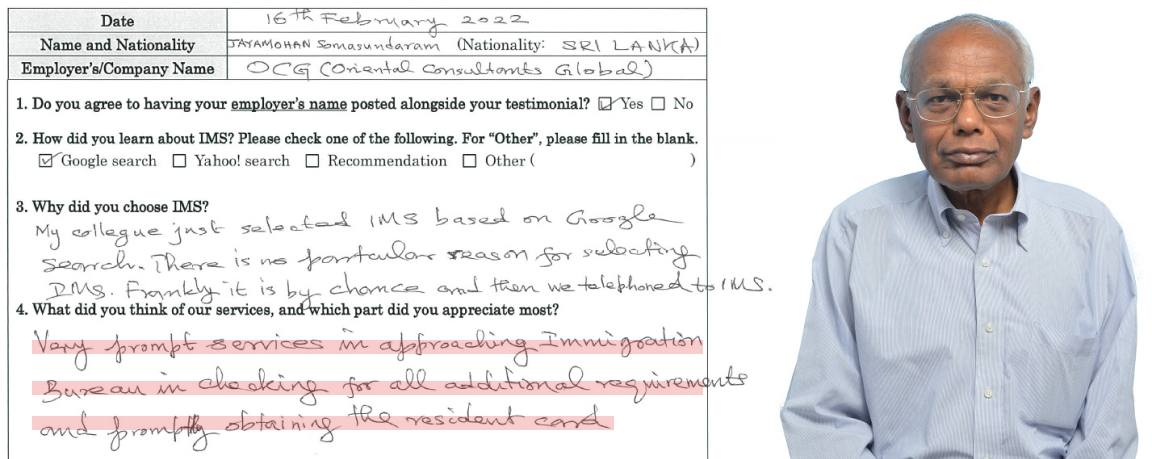 Date 16th February 2022
Name and Nationality JAYAMOHAN Somasundaram (Nationality: SRI LANKA)
Employer's/Company Name OCG (Oriental Consultants Global)
1. Do you agree to having your employer's name posted alongside your testimonial? ☑ Yes ☐ No
2. How did you learn about IMS? Please check one of the following. For “Other”, please fill in the blank.
☑ Google search ☐ Yahoo! search ☐ Recommendation ☐ Other ( )
3. Why did you choose IMS?
My collegue just selected IMS based on Google
search. There is no particular reason for selecting
IMS. Frankly it is by chance and then we telephoned to IMS.
4. What did you think of our services, and which part did you appreciate most?
Very prompt services in approaching Immigration
Bureau in checking for all additional requirements
and promptly obtaining the resident card